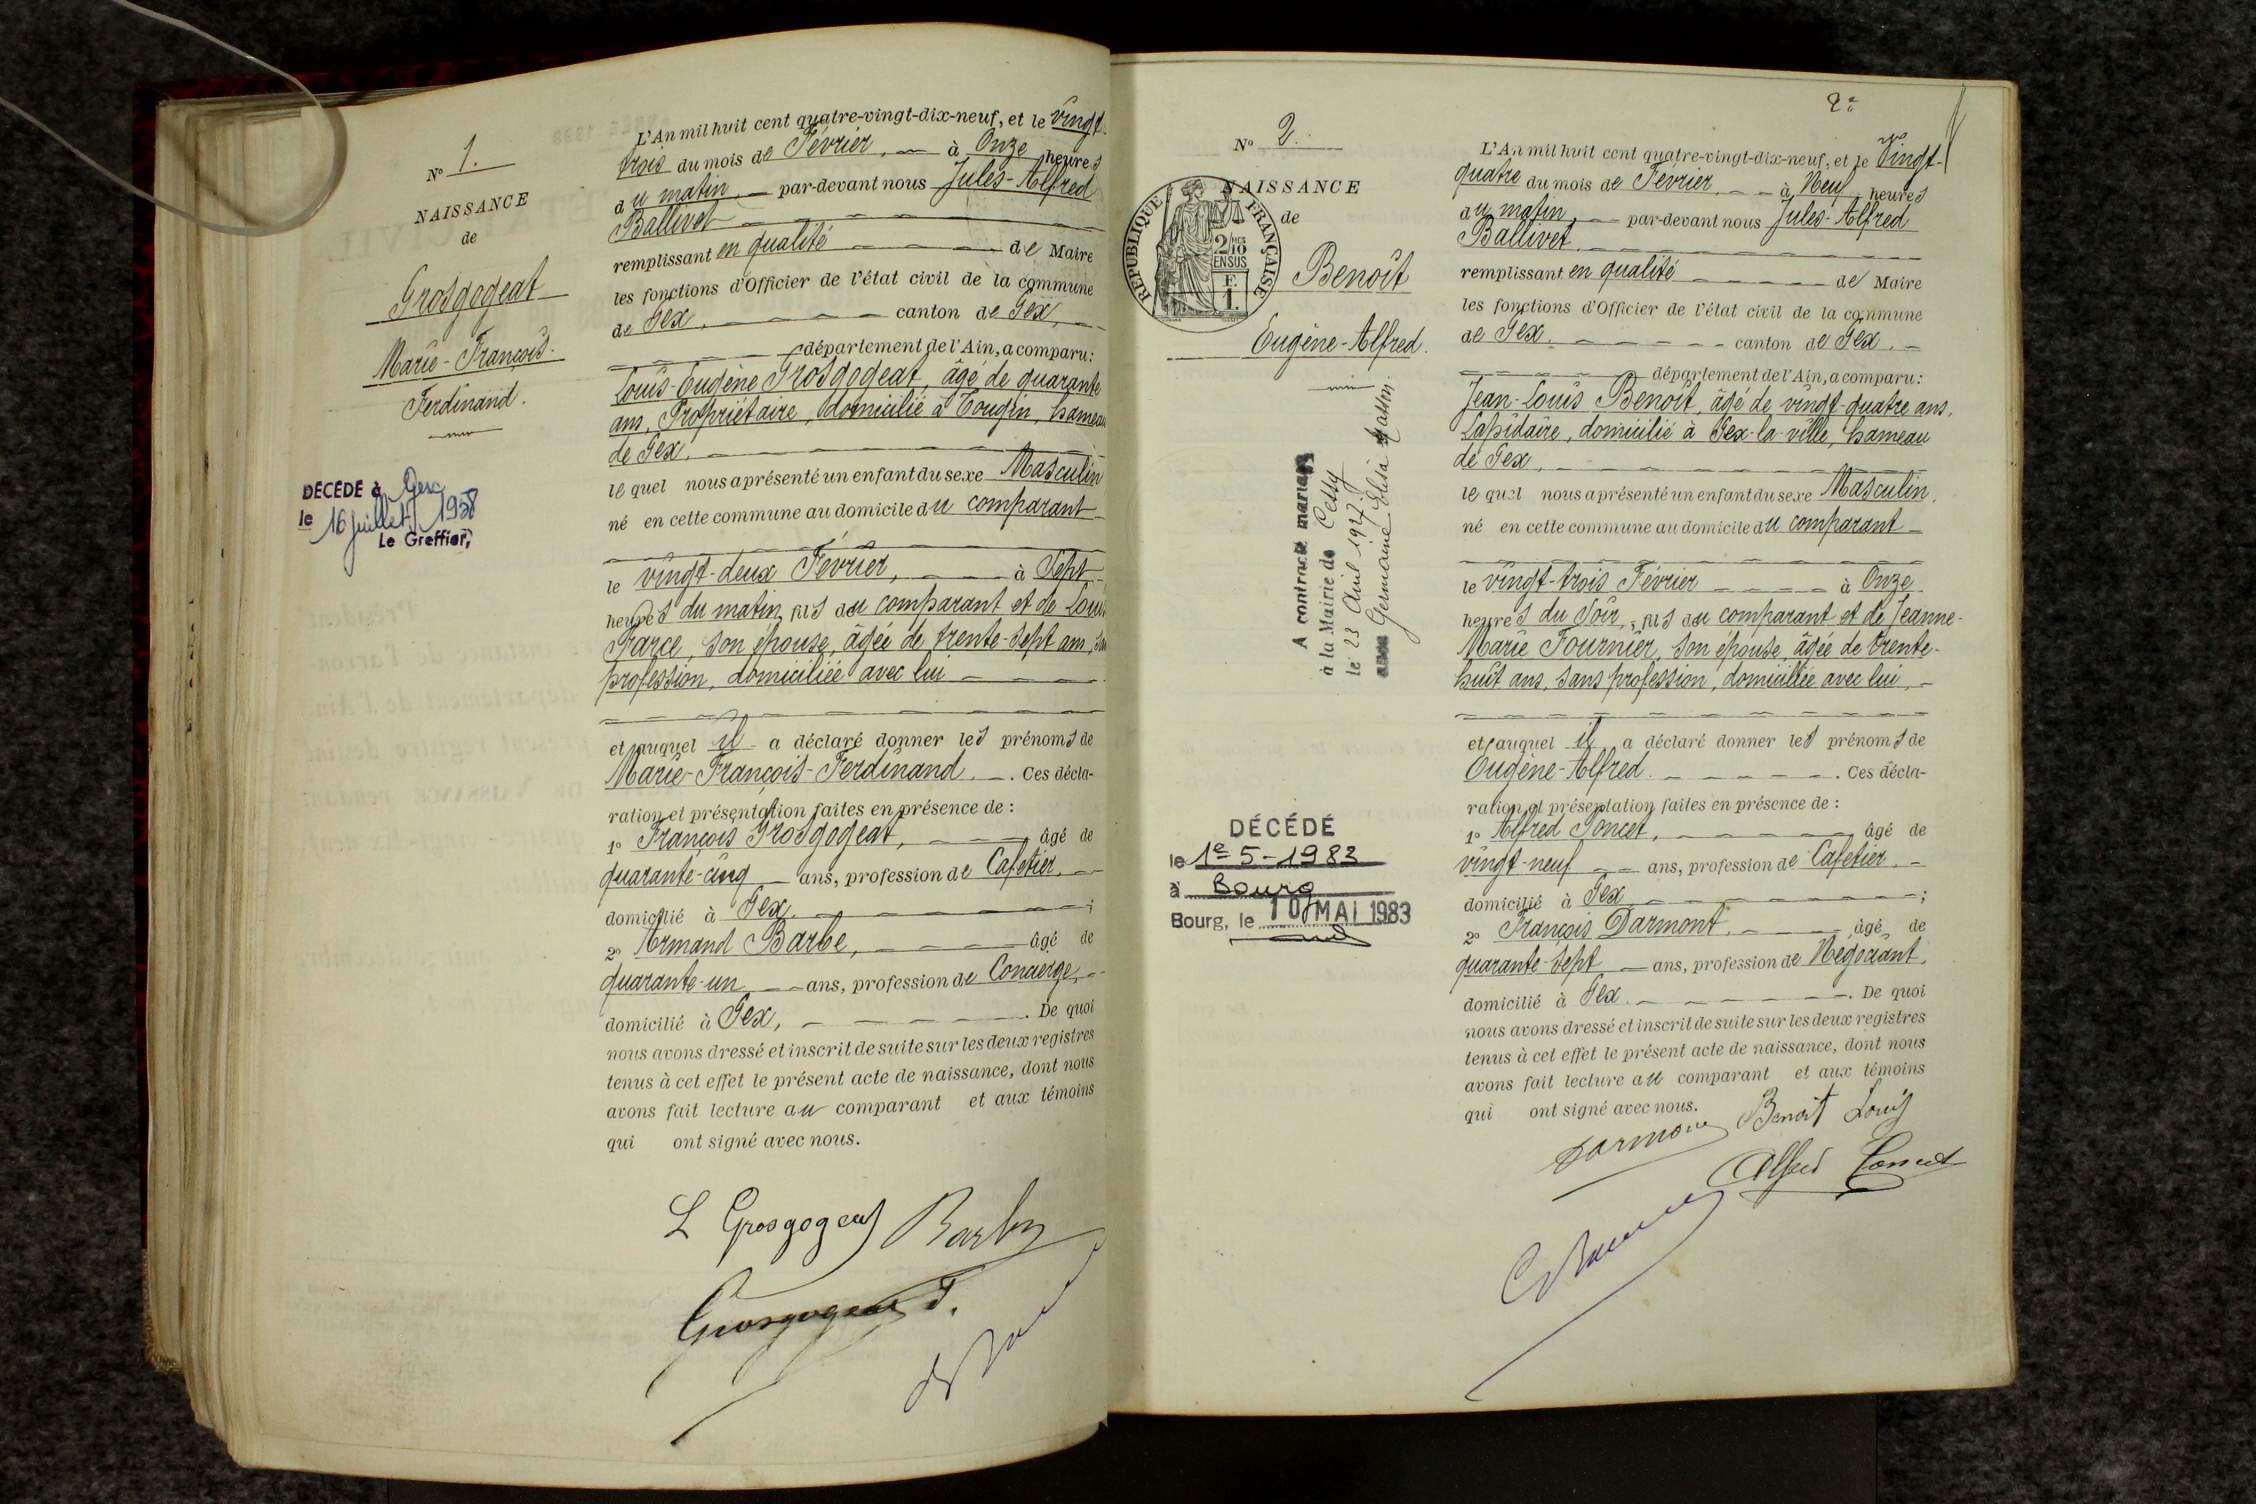 N° 1.
NAISSANCE
de
Grosgogeat
Marie-François-
Ferdinand.
DÉCÉDÉ à Gex
le 16 juillet 1958
Le Greffier,
L'An mil huit cent quatre-vingt-dix-neuf, et le vingt-
trois du mois de Février, à Onze heures
du matin, par-devant nous Jules-Alfred
Ballivet
remplissant en qualité de Maire
les fonctions d'Officier de l'état civil de la commune
de Gex, canton de Gex,
département de l'Ain, a comparu:
Louis-Eugène Grosgogeat, âgé de quarante
ans, Propriétaire, domicilié à Tougin, hameau
de Gex.
le quel nous a présenté un enfant du sexe Masculin
né en cette commune au domicile du comparant
le vingt-deux Février, à Sept
heures du matin, fils du comparant et de
Parce, son épouse, âgée de trente-sept ans,
profession, domiciliée avec lui
et auquel il a déclaré donner les prénoms de
Marie-François-Ferdinand. Ces décla-
ration et présentation faites en présence de :
1° François Grosgogeat, âgé de
quarante-cinq ans, profession de Cafetier,
domicilié à Gex. ;
2° Armand Barbe, âgé de
quarante-un ans, profession de Concierge,
domicilié à Gex, . De quoi
nous avons dressé et inscrit de suite sur les deux registres
tenus à cet effet le présent acte de naissance, dont nous
avons fait lecture au comparant et aux témoins
qui ont signé avec nous.
L Grosgogeat Barbe
Grosgogeat F.
2e
N° 2.
NAISSANCE
de
RÉPUBLIQUE FRANÇAISE
2/10 MES
EN SUS
F.
1.
Benoît
Eugène-Alfred.
A contracté mariage
à la Mairie de Cessy
le 23 Avril 1927
avec Germaine Elisa Mattin.
DÉCÉDÉ
le 1e-5-1983
à Bourg
Bourg, le 10 MAI 1983
L'An mil huit cent quatre-vingt-dix-neuf, et le Vingt-
quatre du mois de Février, à Neuf heures
du matin, par-devant nous Jules-Alfred
Ballivet.
remplissant en qualité de Maire
les fonctions d'Officier de l'état civil de la commune
de Gex. canton de Gex.
département de l'Ain, a comparu:
Jean-Louis Benoît, âgé de vingt-quatre ans,
Lapidaire, domicilié à Gex-la-ville, hameau
de Gex,
le quel nous a présenté un enfant du sexe Masculin,
né en cette commune au domicile du comparant
le vingt-trois Février à Onze
heures du Soir, fils du comparant et de Jeanne-
Marie Fournier, son épouse, âgée de trente-
huit ans, sans profession, domiciliée avec lui,
et auquel il a déclaré donner les prénoms de
Eugène-Alfred. Ces décla-
ration et présentation faites en présence de :
1° Alfred Poncet, âgé de
vingt-neuf ans, profession de Cafetier.
domicilié à Gex ;
2° François Darmont. âgé de
quarante-sept ans, profession de Négociant,
domicilié à Gex . De quoi
nous avons dressé et inscrit de suite sur les deux registres
tenus à cet effet le présent acte de naissance, dont nous
avons fait lecture au comparant et aux témoins
qui ont signé avec nous.
Darmont Benoit Louis
Alfred Poncet